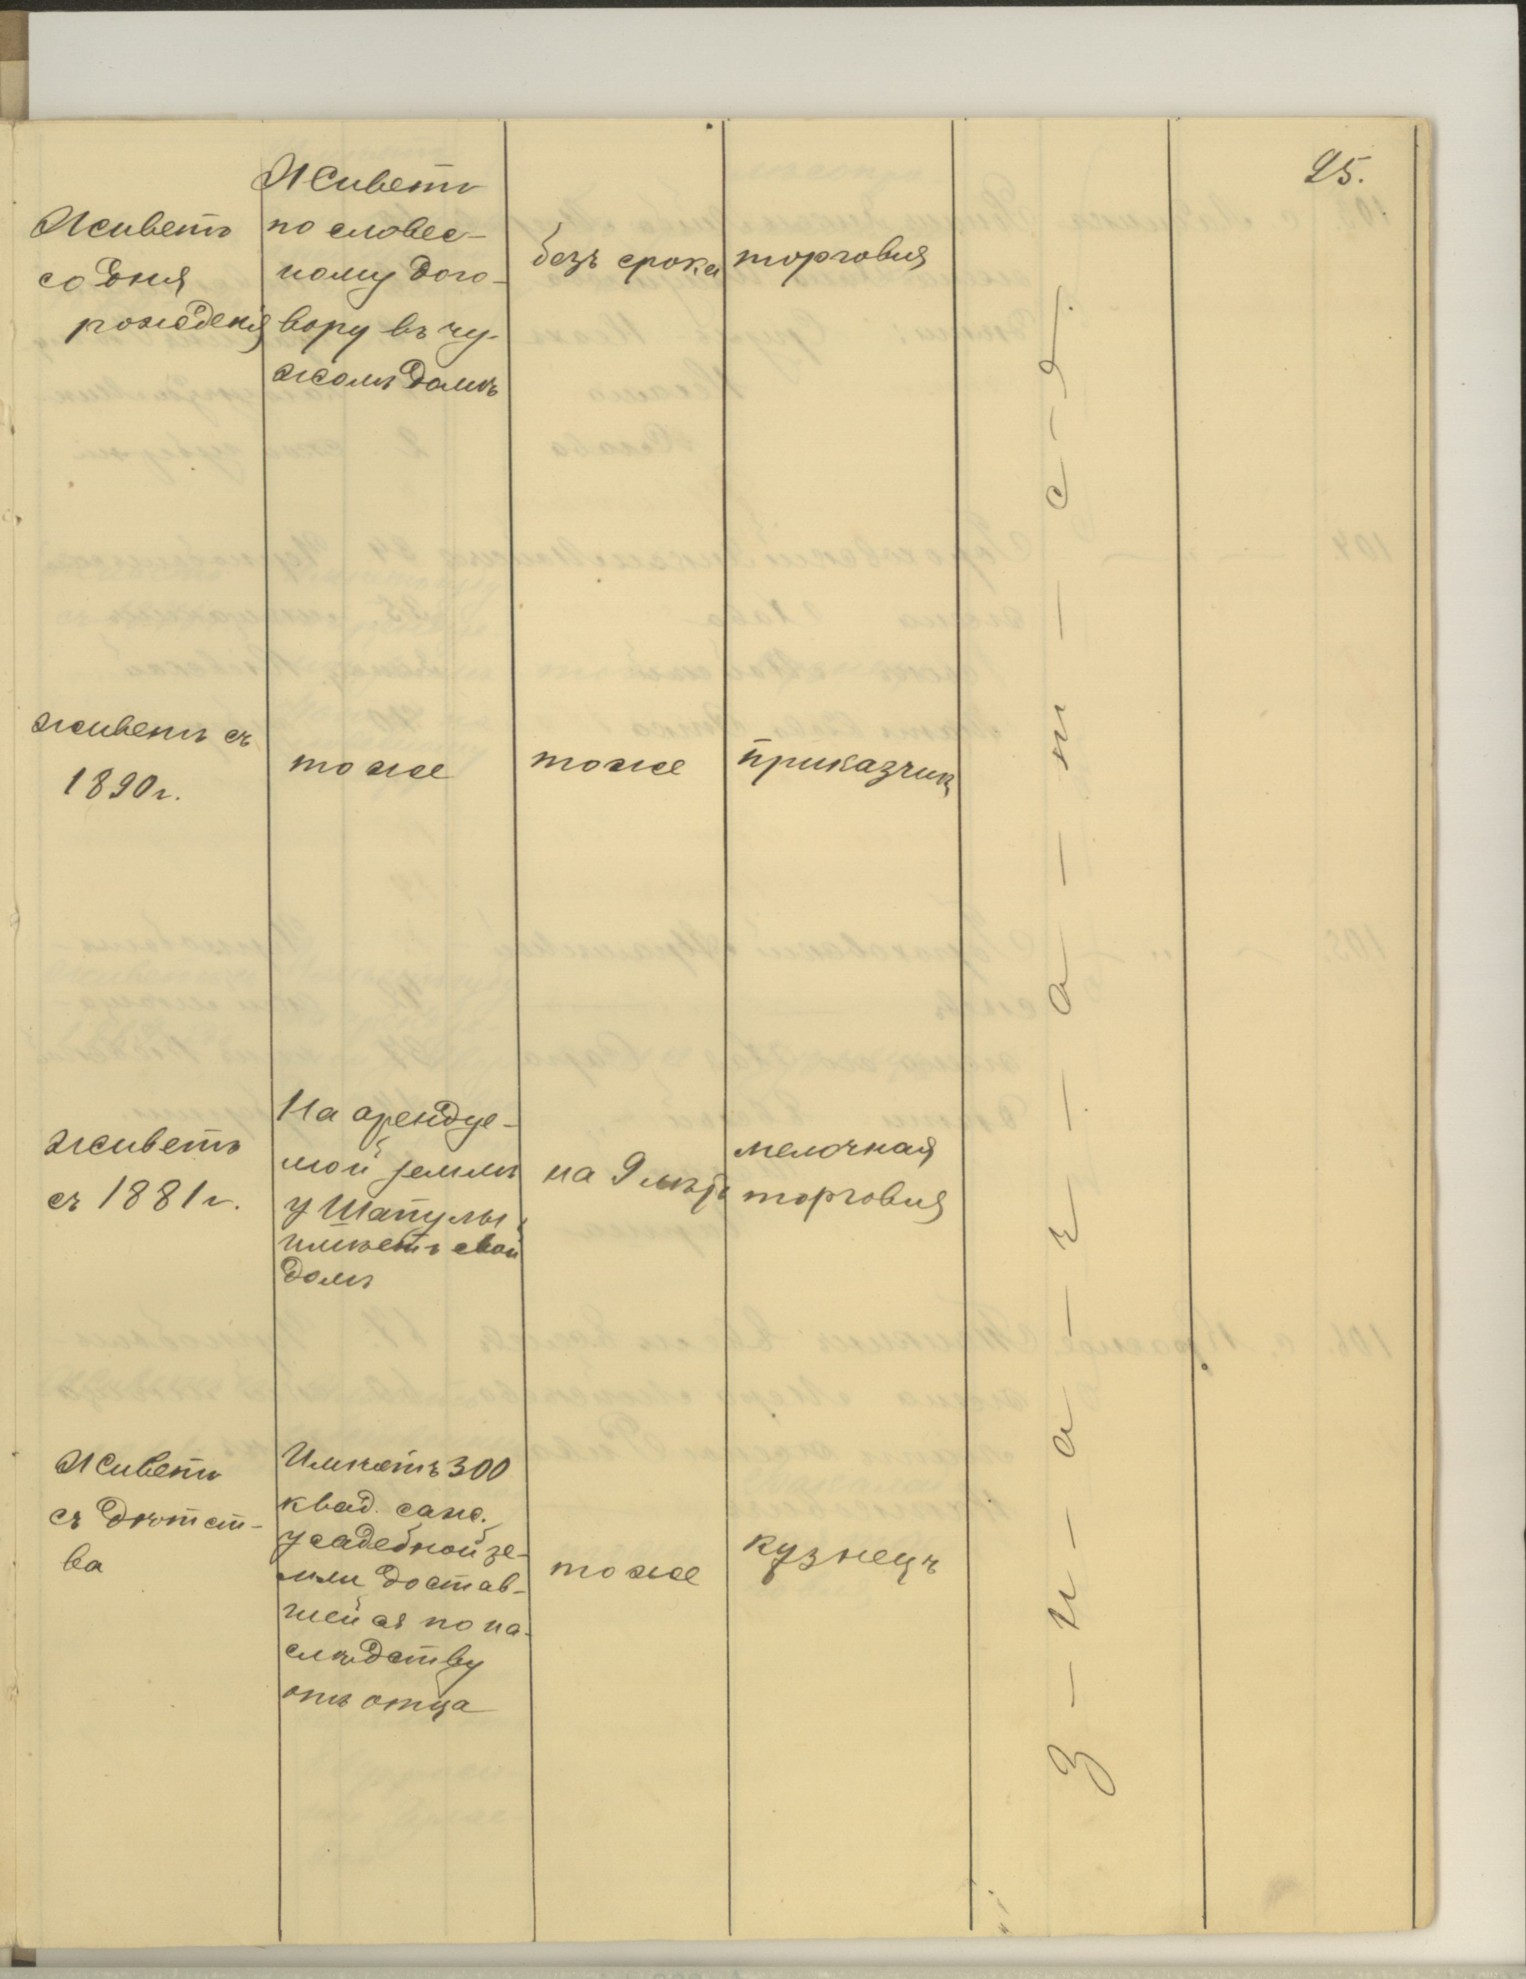 25.
Живетъ
со дня
рожденія
Живетъ
по словес-
ному дого-
вору въ чу-
жомъ домѣ
безъ срока
торговля
живетъ съ
1890 г.
тоже
тоже
приказчик
живетъ
съ 1881 г.
На арендуе-
мой землѣ
у Шапулы
имѣетъ свой
домъ
на 9 лѣтъ
мелочная
торговля
Живетъ
съ дѣтст-
ва
Имѣетъ 300
квад. саж.
усадебной зе-
мли достав-
шейся по на-
слѣдству
отъ отца
тоже
кузнецъ
З-н-а-ч-а-т-с-я.